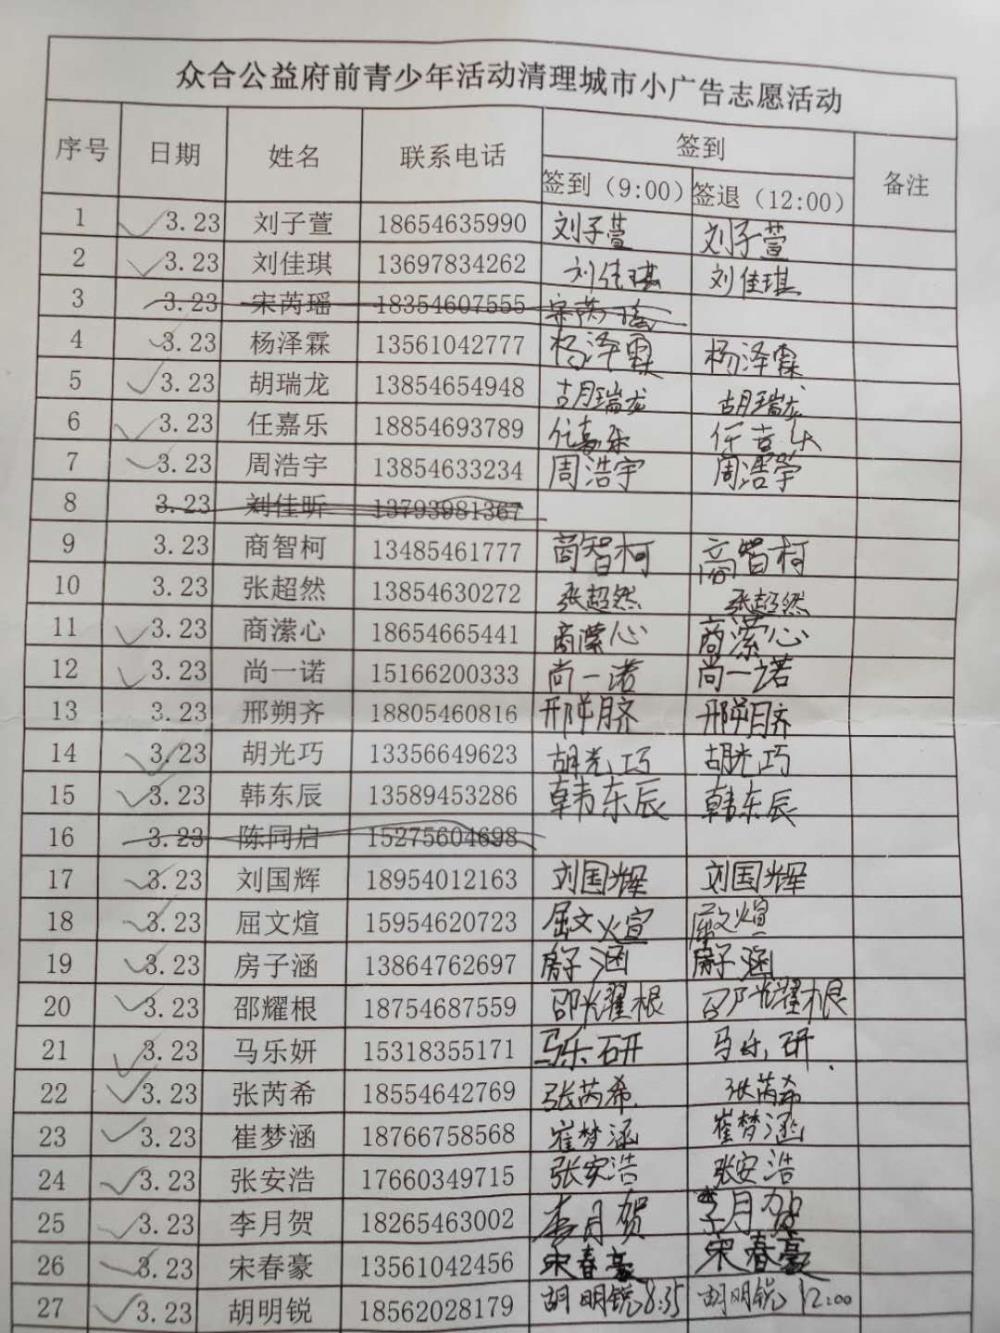 众合公益府前青少年活动清理城市小广告志愿活动
序号 日期 姓名 联系电话 签到 备注
签到（9:00） 签退（12:00）
1 3.23 刘子萱 18654635990 刘子萱 刘子萱
2 3.23 刘佳琪 13697834262 刘佳琪 刘佳琪
3 3.23 宋芮瑶 18354607555 宋芮瑶
4 3.23 杨泽霖 13561042777 杨泽霖 杨泽霖
5 3.23 胡瑞龙 13854654948 胡瑞龙 胡瑞龙
6 3.23 任嘉乐 18854693789 任嘉乐 任嘉乐
7 3.23 周浩宇 13854633234 周浩宇 周浩宇
8 3.23 刘佳昕 13793981367
9 3.23 商智柯 13485461777 商智柯 商智柯
10 3.23 张超然 13854630272 张超然 张超然
11 3.23 商潆心 18654665441 商潆心 商潆心
12 3.23 尚一诺 15166200333 尚一诺 尚一诺
13 3.23 邢朔齐 18805460816 邢朔齐 邢朔齐
14 3.23 胡光巧 13356649623 胡光巧 胡光巧
15 3.23 韩东辰 13589453286 韩东辰 韩东辰
16 3.23 陈同启 15275604698
17 3.23 刘国辉 18954012163 刘国辉 刘国辉
18 3.23 屈文煊 15954620723 屈文煊 屈文煊
19 3.23 房子涵 13864762697 房子涵 房子涵
20 3.23 邵耀根 18754687559 邵耀根 邵耀根
21 3.23 马乐妍 15318355171 马乐研 马乐研
22 3.23 张芮希 18554642769 张芮希 张芮希
23 3.23 崔梦涵 18766758568 崔梦涵 崔梦涵
24 3.23 张安浩 17660349715 张安浩 张安浩
25 3.23 李月贺 18265463002 李月贺 李月贺
26 3.23 宋春豪 13561042456 宋春豪 宋春豪
27 3.23 胡明锐 18562028179 胡明锐 8:35 胡明锐 12:00